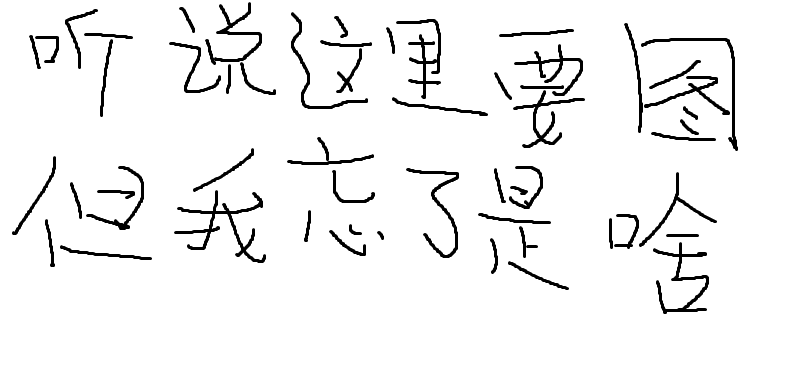 听说这里要图
但我忘了是啥